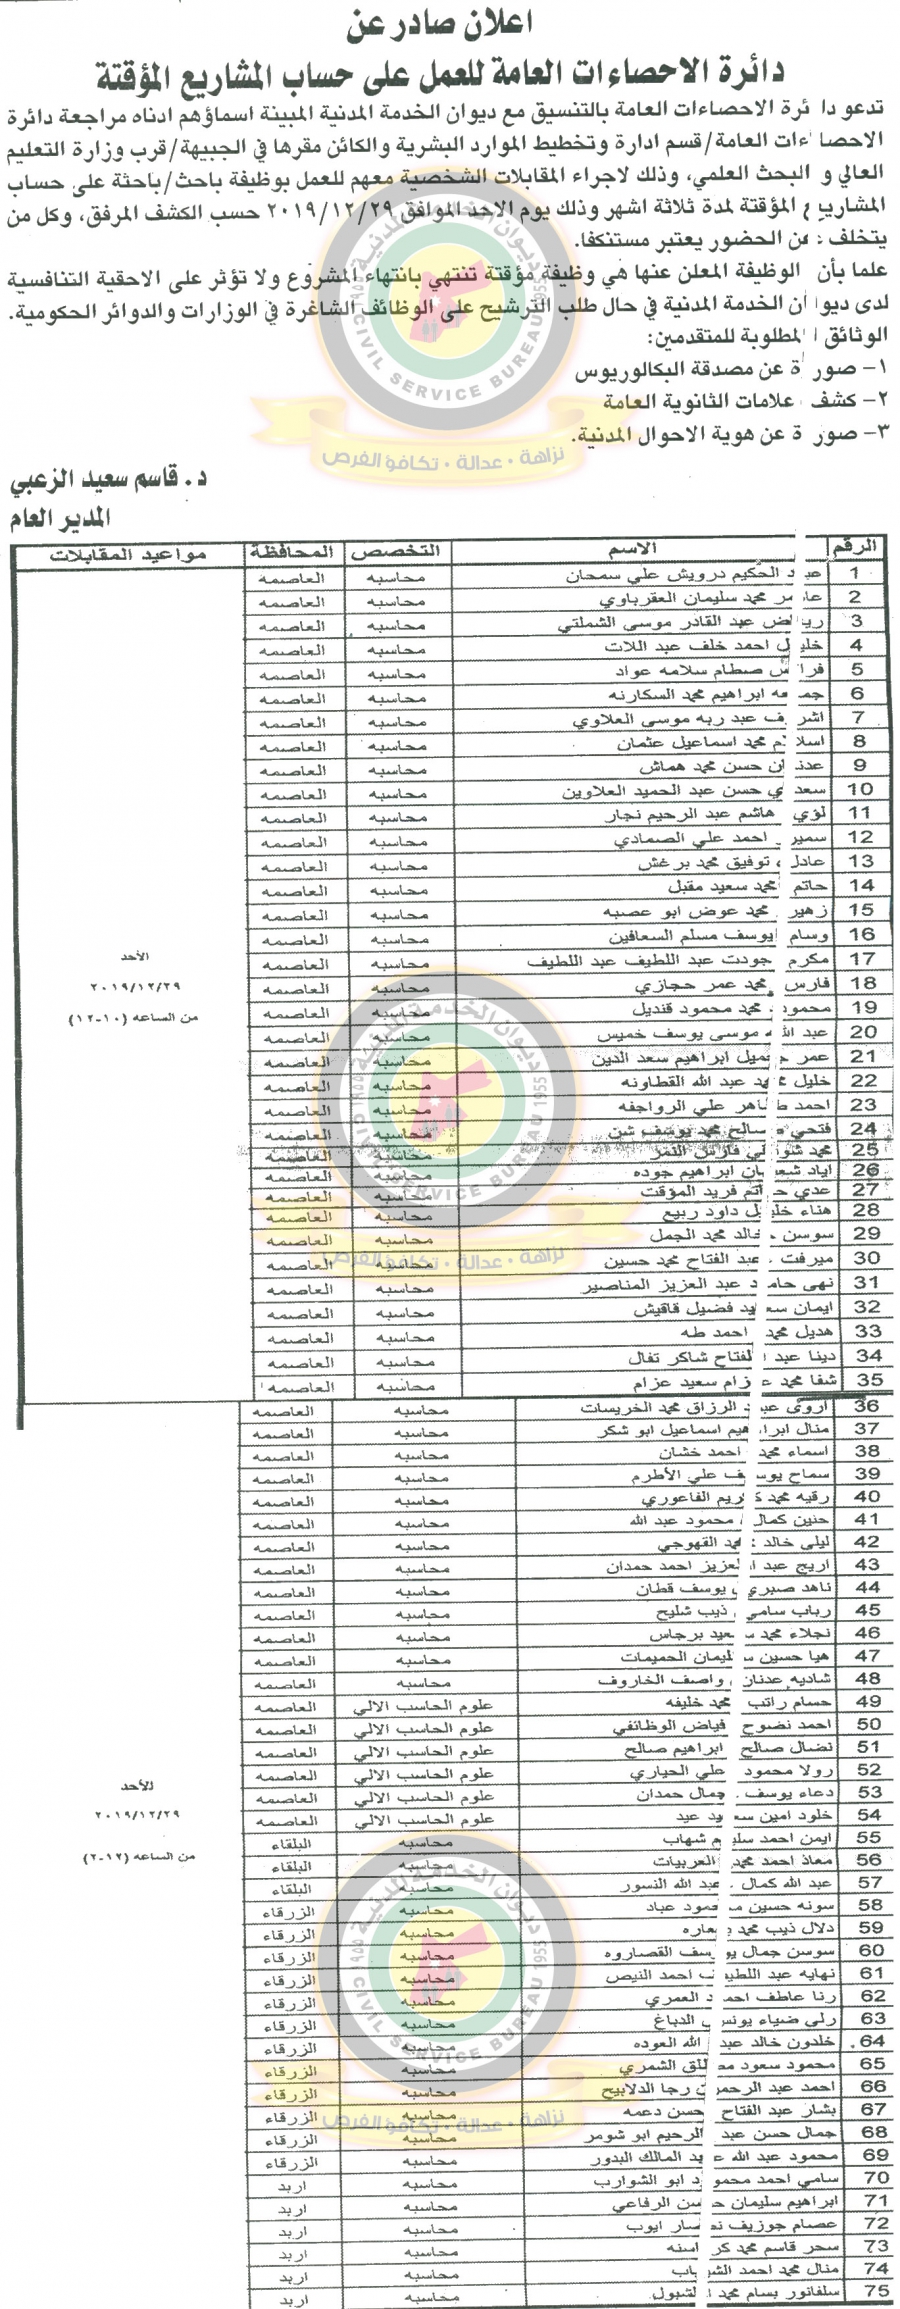 اعلان صادر عن
دائرة الاحصاءات العامة للعمل على حساب المشاريع المؤقتة
تدعو دائرة الاحصاءات العامة بالتنسيق مع ديوان الخدمة المدنية المبينة اسماؤهم ادناه مراجعة دائرة
الاحصاءات العامة/قسم ادارة وتخطيط الموارد البشرية والكائن مقرها في الجبيهة/قرب وزارة التعليم
العالي و البحث العلمي، وذلك لاجراء المقابلات الشخصية معهم للعمل بوظيفة باحث/باحثة على حساب
المشاريع المؤقتة لمدة ثلاثة اشهر وذلك يوم الاحد الموافق ٢٠١٩/١٢/٢٩ حسب الكشف المرفق، وكل من
يتخلف عن الحضور يعتبر مستنكفا.
علما بأن الوظيفة المعلن عنها هي وظيفة مؤقتة تنتهي بانتهاء المشروع ولا تؤثر على الاحقية التنافسية
لدى ديوان الخدمة المدنية في حال طلب الترشيح على الوظائف الشاغرة في الوزارات والدوائر الحكومية.
الوثائق المطلوبة للمتقدمين:
١- صورة عن مصدقة البكالوريوس
٢- كشف علامات الثانوية العامة
٣- صورة عن هوية الاحوال المدنية.
د. قاسم سعيد الزعبي
المدير العام
ديوان الخدمة المدنية
CIVIL SERVICE BUREAU 1955 ١٩٥٥
نزاهة · عدالة · تكافؤ الفرص
الرقم الاسم التخصص المحافظة مواعيد المقابلات
1 عبد الحكيم درويش علي سمحان محاسبه العاصمه
2 عامر محمد سليمان العقرباوي محاسبه العاصمه
3 رياض عبد القادر موسى الشملتي محاسبه العاصمه
4 خليل احمد خلف عبد اللات محاسبه العاصمه
5 فراس صطام سلامه عواد محاسبه العاصمه
6 جمعه ابراهيم محمد السكارنه محاسبه العاصمه
7 اشرف عبد ربه موسى العلاوي محاسبه العاصمه
8 اسلام محمد اسماعيل عثمان محاسبه العاصمه
9 عدنان حسن محمد هماش محاسبه العاصمه
10 سعدي حسن عبد الحميد العلاوين محاسبه العاصمه
11 لؤي هاشم عبد الرحيم نجار محاسبه العاصمه
12 سمير احمد علي الصمادي محاسبه العاصمه
13 عادل توفيق محمد برغش محاسبه العاصمه
14 حاتم محمد سعيد مقبل محاسبه العاصمه
15 زهير محمد عوض ابو عصبه محاسبه العاصمه
16 وسام يوسف مسلم السعافين محاسبه العاصمه
17 مكرم جودت عبد اللطيف عبد اللطيف محاسبه العاصمه
الأحد
٢٠١٩/١٢/٢٩
من الساعه (١٠-١٢)
18 فارس محمد عمر حجازي محاسبه العاصمه
19 محمود محمد محمود قنديل محاسبه العاصمه
20 عبد الله موسى يوسف خميس محاسبه العاصمه
21 عمر جميل ابراهيم سعد الدين محاسبه العاصمه
22 خليل محمد عبد الله القطاونه محاسبه العاصمه
23 احمد طاهر علي الرواجفه محاسبه العاصمه
24 فتحي صالح محمد يوسف شن محاسبه العاصمه
25 محمد شوقي فارس النمر محاسبه العاصمه
26 اياد شعبان ابراهيم جوده محاسبه العاصمه
27 عدي حاتم فريد المؤقت محاسبه العاصمه
28 هناء خليل داود ربيع محاسبه العاصمه
29 سوسن خالد محمد الجمل محاسبه العاصمه
30 ميرفت عبد الفتاح محمد حسين محاسبه العاصمه
31 نهى حامد عبد العزيز المناصير محاسبه العاصمه
32 ايمان سعيد فضيل قاقيش محاسبه العاصمه
33 هديل محمد احمد طه محاسبه العاصمه
34 دينا عبد الفتاح شاكر تفال محاسبه العاصمه
35 شفا محمد عزام سعيد عزام محاسبه العاصمه
36 اروى عبد الرزاق محمد الخريسات محاسبه العاصمه
37 منال ابراهيم اسماعيل ابو شكر محاسبه العاصمه
38 اسماء محمد احمد خشان محاسبه العاصمه
39 سماح يوسف علي الأطرم محاسبه العاصمه
40 رقيه محمد كريم الفاعوري محاسبه العاصمه
41 حنين كمال محمود عبد الله محاسبه العاصمه
42 ليلى خالد محمد القهوجي محاسبه العاصمه
43 اريج عبد العزيز احمد حمدان محاسبه العاصمه
44 ناهد صبري يوسف قطان محاسبه العاصمه
45 رباب سامي ذيب شليح محاسبه العاصمه
46 نجلاء محمد سعيد برجاس محاسبه العاصمه
47 هيا حسين سليمان الحميمات محاسبه العاصمه
48 شاديه عدنان واصف الخاروف محاسبه العاصمه
49 حسام راتب محمد خليفه علوم الحاسب الالي العاصمه
50 احمد نضوح فياض الوظائفي علوم الحاسب الالي العاصمه
51 نضال صالح ابراهيم صالح علوم الحاسب الالي العاصمه
52 رولا محمود علي الحياري علوم الحاسب الالي العاصمه
53 دعاء يوسف جمال حمدان علوم الحاسب الالي العاصمه
54 خلود امين سعيد عيد علوم الحاسب الالي العاصمه
الأحد
٢٠١٩/١٢/٢٩
من الساعه (١٢-٢)
55 ايمن احمد سليم شهاب محاسبه البلقاء
56 معاذ احمد محمد العربيات محاسبه البلقاء
57 عبد الله كمال عبد الله النسور محاسبه البلقاء
58 سونه حسين محمود عباد محاسبه الزرقاء
59 دلال ذيب محمد محاسبه الزرقاء
60 سوسن جمال يوسف القصاروه محاسبه الزرقاء
61 نهايه عبد اللطيف احمد النيص محاسبه الزرقاء
62 رنا عاطف احمد العمري محاسبه الزرقاء
63 رلى ضياء يونس الدباغ محاسبه الزرقاء
64 خلدون خالد عبد الله العوده محاسبه الزرقاء
65 محمود سعود مطلق الشمري محاسبه الزرقاء
66 احمد عبد الرحمن رجا الدلابيح محاسبه الزرقاء
67 بشار عبد الفتاح حسن دعمه محاسبه الزرقاء
68 جمال حسن عبد الرحيم ابو شومر محاسبه الزرقاء
69 محمود عبد الله عبد المالك البدور محاسبه الزرقاء
70 سامي احمد محمود ابو الشوارب محاسبه اربد
71 ابراهيم سليمان حسن الرفاعي محاسبه اربد
72 عصام جوزيف نصار ايوب محاسبه اربد
73 سحر قاسم محمد كراسنه محاسبه اربد
74 منال محمد احمد الشياب محاسبه اربد
75 سلفانور بسام محمد الشبول محاسبه اربد